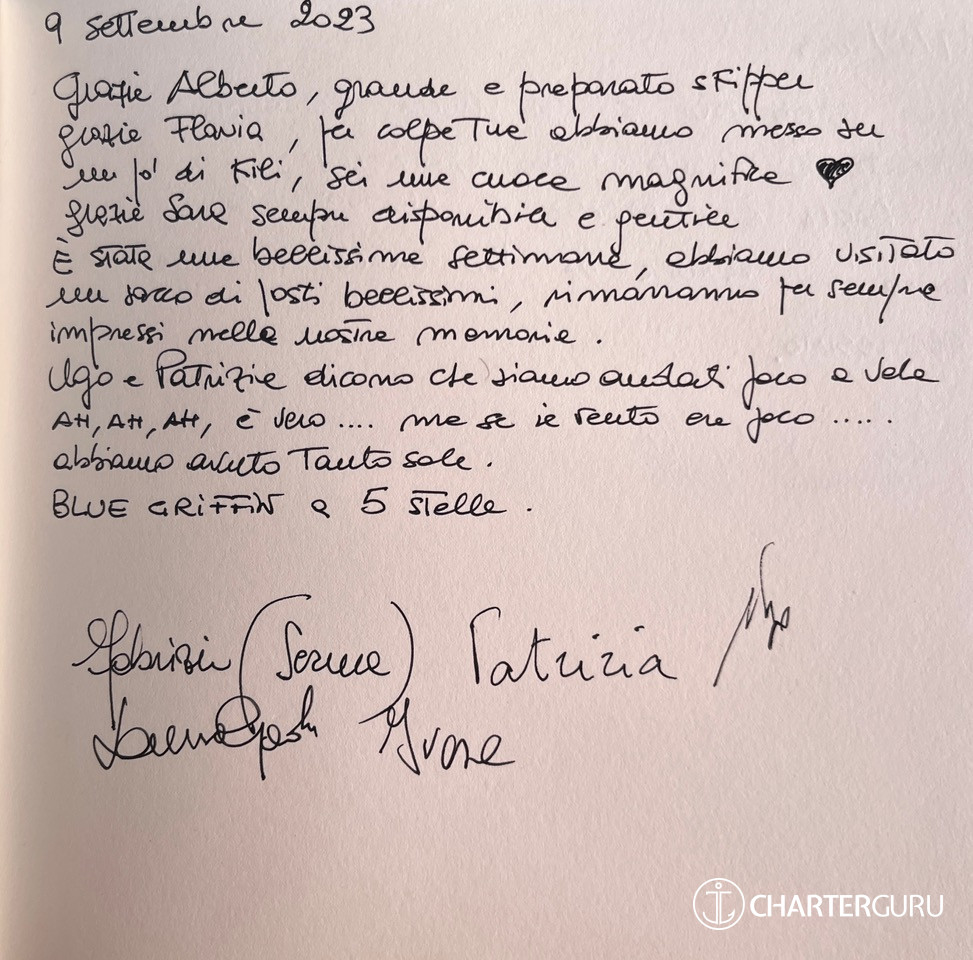 9 settembre 2023
Grazie Alberto, grande e preparato skipper
grazie Flavia, per colpa Tua abbiamo messo su
un po' di Kili, sei una cuoca magnifica ♥
grazie Sara sempre disponibile e gentile
È stata una bellissima settimana, abbiamo visitato
un sacco di posti bellissimi, rimarranno per sempre
impressi nella nostra memoria.
Ugo e Patrizia dicono che siamo andati poco a vela
AH, AH, AH, è vero .... ma se il vento era poco .....
abbiamo avuto Tanto sole.
BLUE GRIFFIN a 5 stelle.
Patrizia Ugo
Ivone
CHARTERGURU